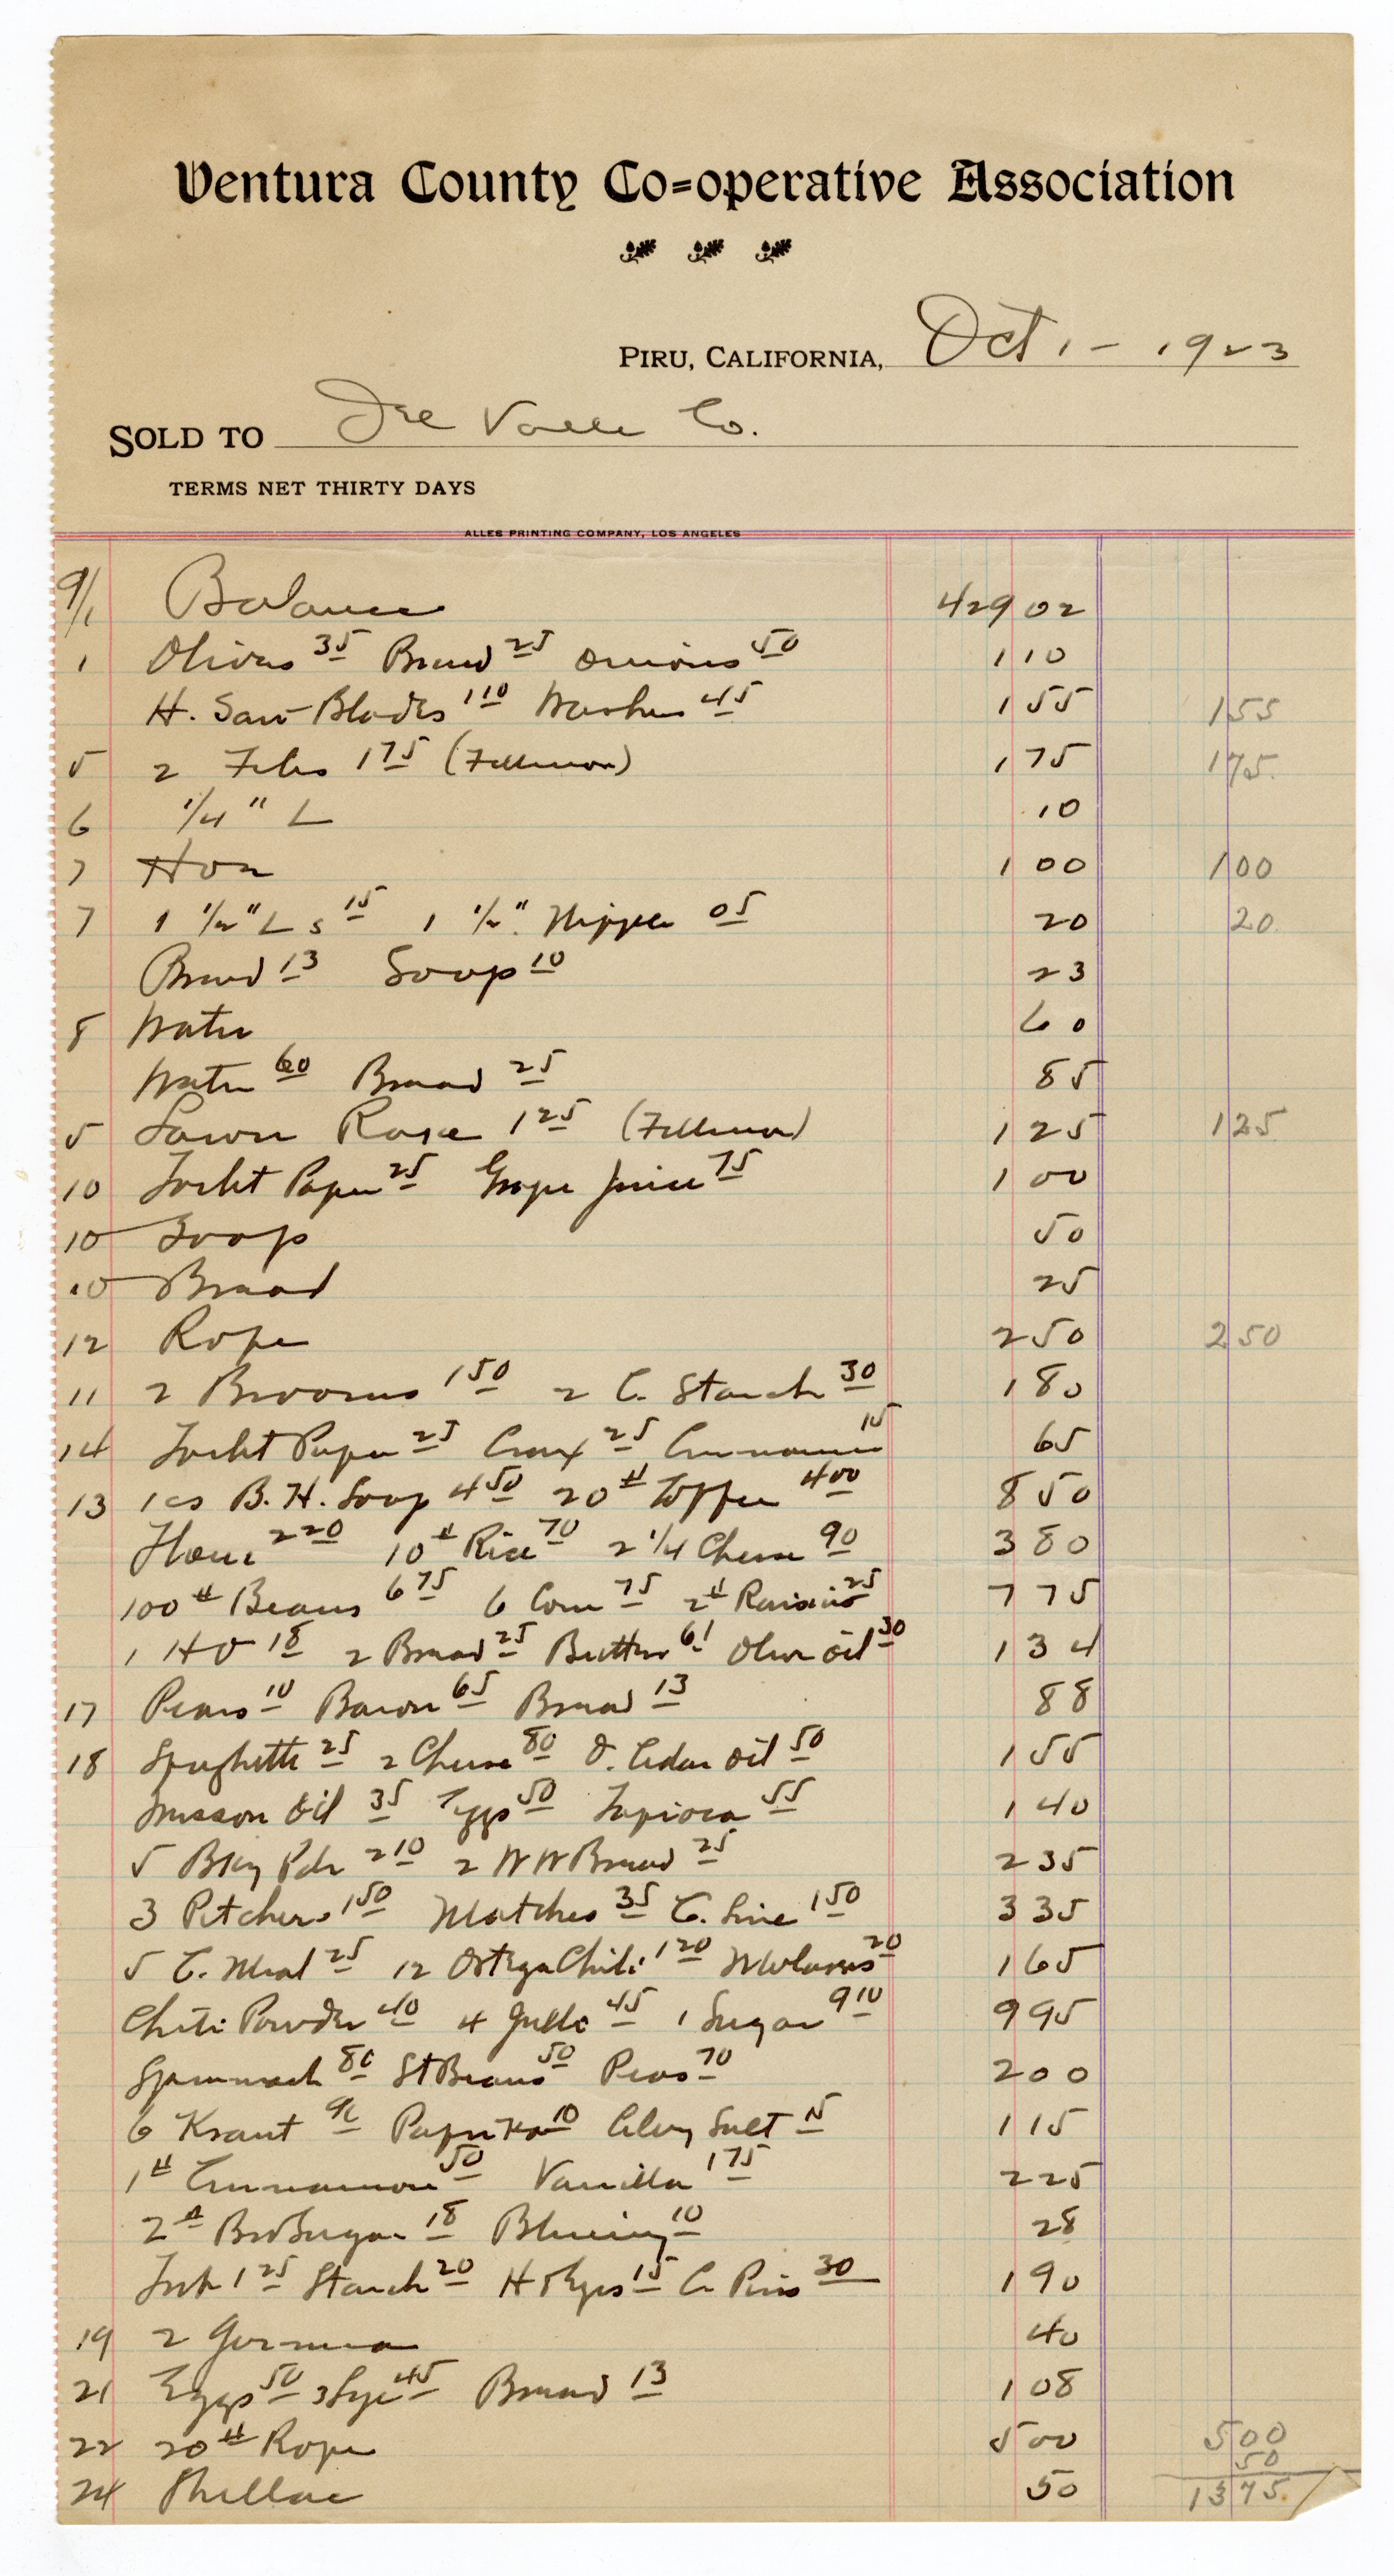 Ventura County Co=operative Association
PIRU, CALIFORNIA, Oct 1 - 1923
SOLD TO Del Valle Co.
TERMS NET THIRTY DAYS
ALLES PRINTING COMPANY, LOS ANGELES
9/1 Balance 429 02
1 Olives 35 Bread 25 Onions 50 1 10
H. Saw Blades 1 10 Washers 45 1 55 1 55
5 2 Files 1 75 (Fillmore) 1 75 1 75
6 1/4 " L 10
7 Hoe 1 00 1 00
7 1 1/2" L s 15 1 1/2" Nipple 05 20 20
Bread 13 Soap 10 23
8 Water 60
Water 60 Bread 25 85
5 Lawn Rake 1 25 (Fillmore) 1 25 1 25
10 Toilet Paper 25 Grape Juice 75 1 00
10 Soap 50
10 Bread 25
12 Rope 2 50 2 50
11 2 Brooms 1 50 2 C. Starch 30 1 80
14 Toilet Paper 25 25 Cinnamon 15 65
13 1 cs B. H. Soap 4 50 20 # Coffee 4 00 8 50
Flour 2 20 10 # Rice 70 2 1/4 Cheese 90 3 80
100 # Beans 6 75 6 Corn 75 2 # Raisins 25 7 75
1 H O 18 2 Bread 25 Butter 61 Olive Oil 30 1 34
17 Pears 10 Bacon 65 Bread 13 88
18 Spaghetti 25 2 Cheese 80 O. Cedar Oil 50 1 55
Wesson Oil 35 Eggs 50 Tapioca 55 1 40
5 Bkg Pdr 2 10 2 W W Bread 25 2 35
3 Pitchers 1 50 Matches 35 C. Line 1 50 3 35
5 C. Meal 25 12 Ortega Chili 1 20 Molasses 20 1 65
Chili Powder 40 4 Jello 45 1 Sugar 9 10 9 95
Spinnach 80 St Beans 50 Peas 70 2 00
6 Kraut 90 Paprika 10 Celery Salt 15 1 15
1 # Cinnamon 50 Vanilla 1 75 2 25
2 # Bro Sugar 18 Blueing 10 28
1 25 Starch 20 H & Eyes 15 C. Pins 30 1 90
19 2 40
21 Eggs 50 3 Lye 45 Bread 13 1 08
22 20 # Rope 5 00 5 00
50
24 Shellac 50 13 75